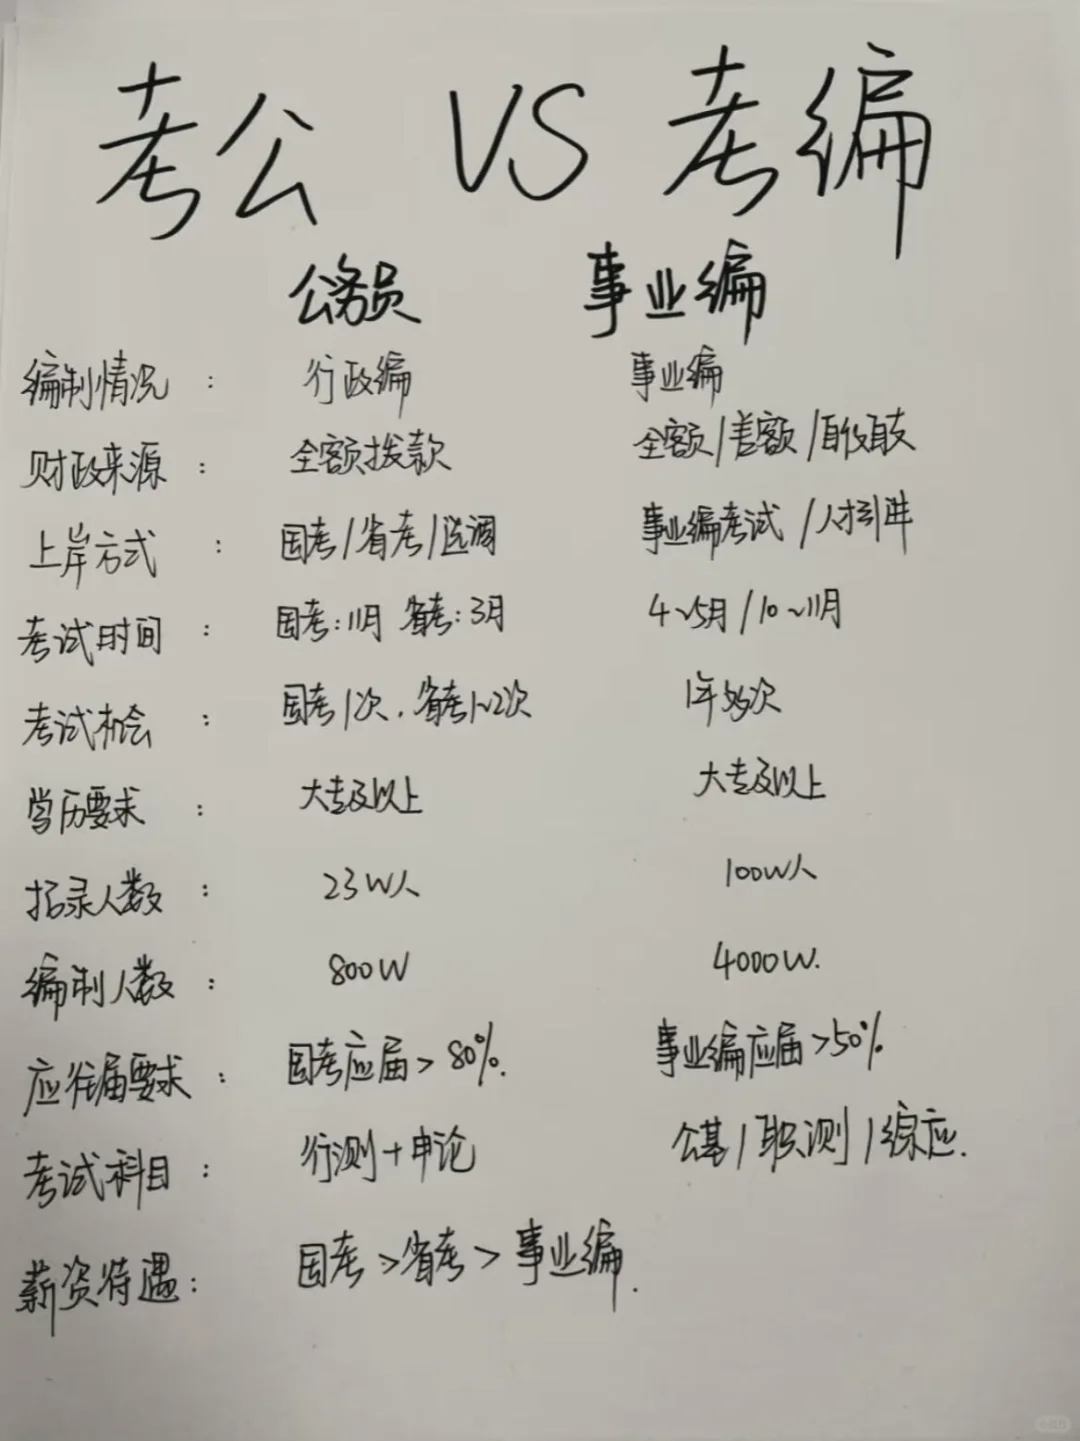 考公 VS 考编
公务员 事业编
编制情况： 行政编 事业编
财政来源： 全额拨款 全额/差额/自收自支
上岸方式： 国考/省考/选调 事业编考试/人才引进
考试时间： 国考:11月 省考:3月 4~5月/10~11月
考试机会： 国考1次,省考1~2次 1年多次
学历要求： 大专及以上 大专及以上
招录人数： 23W人 100W人
编制人数： 800W 4000W.
应往届要求： 国考应届>80%. 事业编应届>50%
考试科目： 行测+申论 公基/职测/综应.
薪资待遇： 国考>省考>事业编.